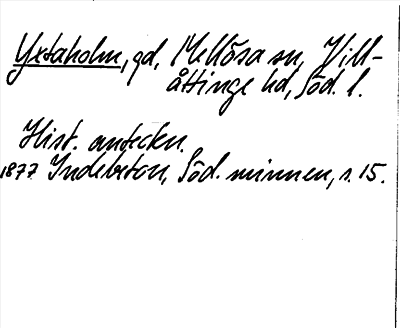 Yxtaholm, gd, Mellösa sn, Vill-
åttinge hd, Söd. l.
Hist. anteckn.
1877 Indebetou, Söd. minnen, s. 15.